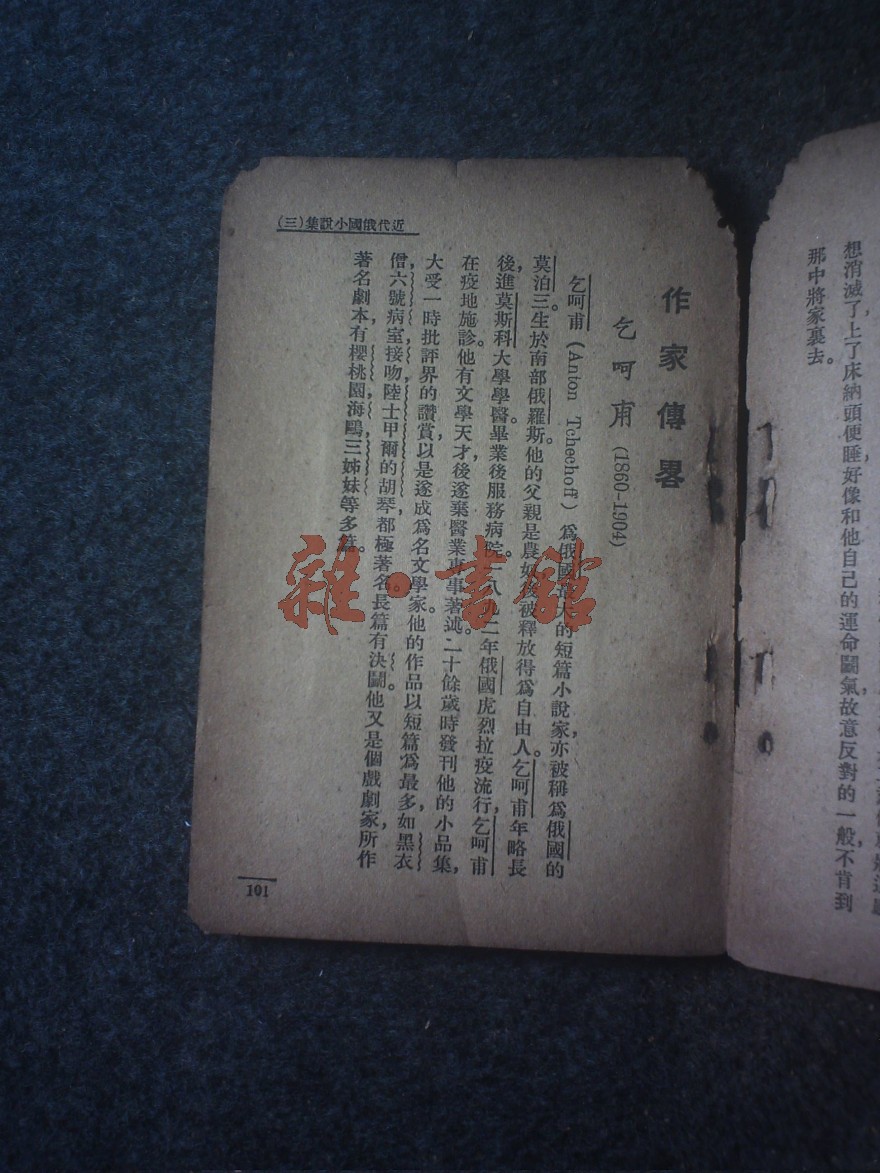 想消滅了上了床納頭便睡好像和他自己的運命鬭氣故意反對的一般不肯到
那中將家裏去。
近代俄國小說集(三)
作家傳畧
乞呵甫 (1860-1904)
乞呵甫 (Anton Tchechoff) 爲俄國最大的短篇小說家,亦被稱爲俄國的
莫泊三。生於南部俄羅斯。他的父親是農奴後被釋放得爲自由人。乞呵甫年略長
後,進莫斯科大學學醫。畢業後服務病院。一八九二年俄國虎烈拉疫流行,乞呵甫
在疫地施診。他有文學天才,後遂棄醫業專事著述。二十餘歲時發刊他的小品集,
大受一時批評界的讚賞以是遂成爲名文學家。他的作品以短篇爲最多,如黑衣
僧,六號病室,接吻,陸士甲爾的胡琴都極著名。長篇有決鬭。他又是個戲劇家,所作
著名劇本有櫻桃園,海鷗,三姊妹等多篇。
101
雜·書館